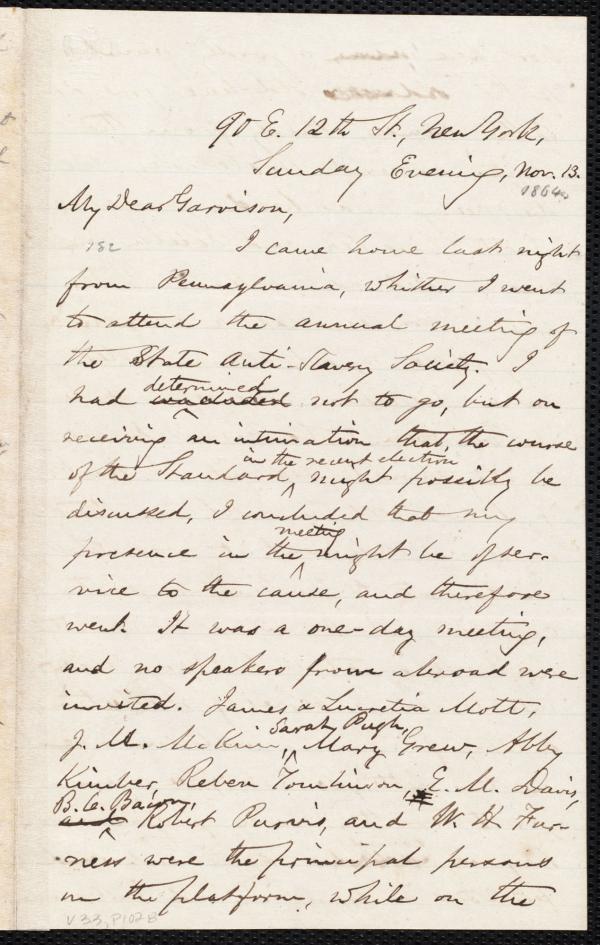 90 E. 12th St., New York,
Sunday Evening, Nov. 13.
1864
My Dear Garrison,
182
I came home last night
from Pennsylvania, whither I went
to attend the annual meeting of
the State Anti-Slavery Society. I
had determined not to go, but on
receiving an intimation that the course
of the Standard in the recent election might possibly be
discussed, I concluded that my
presence in the meeting might be of ser-
vice to the cause, and therefore
went. It was a one-day meeting,
and no speakers from abroad were
invited. James & Lucretia Mott,
J. M. McKim, Sarah Pugh, Mary Grew, Abby
Kimber, Reben Tomlinson, E. M. Davis,
B. C. Bacon, Robert Purvis, and W. H. Fur-
ness were the principal persons
on the platform, while on the
V 33, P 102 B